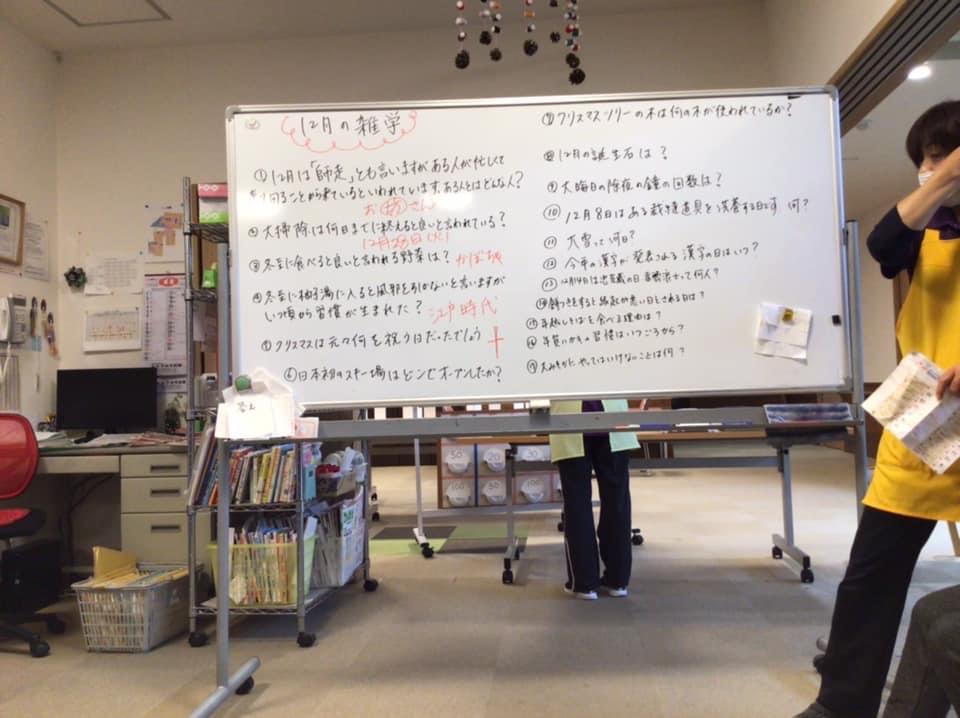 12月の雑学
①12月は「師走」とも言いますがある人が忙しくて
走り回ることから来ているといわれています。ある人とはどんな人?
お坊さん
②大掃除は何日までに終えると良いと言われている?
12月28日(火)
③冬至に食べると良いと言われる野菜は? かぼちゃ
④冬至に柚子湯に入ると風邪を引かないと言いますが
いつ頃から習慣が生まれた? 江戸時代
⑤クリスマスは元々何を祝う日だったでしょう
⑥日本初のスキー場はどこにオープンしたか?
⑦クリスマスツリーの木は何の木が使われているか?
⑧12月の誕生石は?
⑨大晦日の除夜の鐘の回数は?
⑩12月8日はある裁縫道具を供養する日です 何?
⑪大雪って何日?
⑫今年の漢字が発表される漢字の日はいつ?
⑬12月14日は忠臣蔵の日 って何人?
⑭餅つきをすると縁起が悪い日とされる日は?
⑮年越しそばを食べる理由は?
⑯年賀はがきの習慣はいつごろから?
⑰大みそかにやってはいけないことは何?
50
20
30
100
50
100